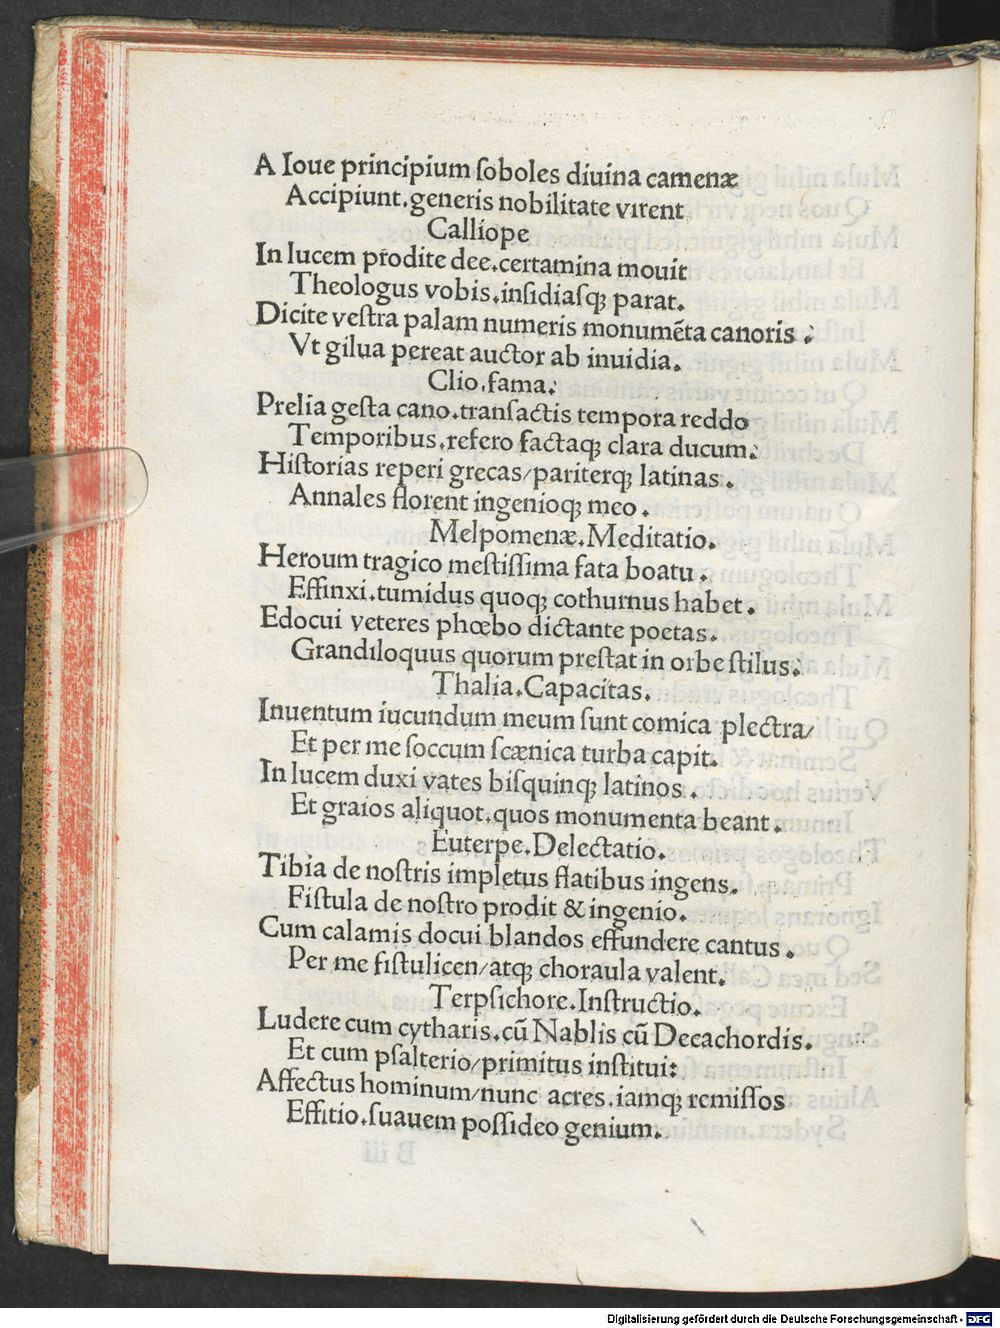 A Ioue principium ſoboles diuina camenæ
Accipiunt.generis nobilitate virent
Calliope
In lucem prodite dee.certamina mouit
Theologus vobis.inſidiaſqꝫ parat.
Dicite veſtra palam numeris monumēta canoris :
Vt gilua pereat auctor ab inuidia.
Clio.fama:
Prelia geſta cano.tranſactis tempora reddo
Temporibus.refero factaqꝫ clara ducum:
Hiſtorias reperi grecas/pariterqꝫ latinas.
Annales florent ingenioqꝫ meo.
Melpomenæ.Meditatio.
Heroum tragico meſtiſſima fata boatu.
Effinxi.tumidus quoqꝫ cothurnus habet.
Edocui veteres phœbo dictante poetas.
Grandiloquus quorum preſtat in orbe ſtilus:
Thalia.Capacitas.
Inuentum iucundum meum ſunt comica plectra/
Et per me ſoccum ſcænica turba capit.
In lucem duxi vates biſquinqꝫ latinos.
Et graios aliquot.quos monumenta beant.
Euterpe.Delectatio.
Tibia de noſtris impletus flatibus ingens.
Fiſtula de noſtro prodit & ingenio.
Cum calamis docui blandos effundere cantus.
Per me fiſtulicen/atqꝫ choraula valent.
Terpſichore.Inſtructio.
Ludere cum cytharis.cū Nablis cū Decachordis.
Et cum pſalterio/primitus inſtitui:
Affectus hominum/nunc acres.iamqꝫ remiſſos
Effitio.ſuauem poſſideo genium.
Digitalisierung gefördert durch die Deutsche Forschungsgemeinschaft - DFG